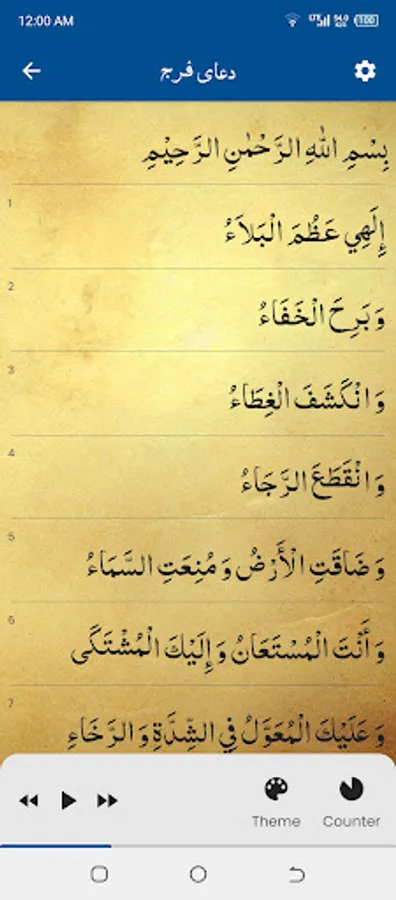 12:00 AM
دعای فرج
بِسْمِ اللهِ الرَّحْمٰنِ الرَّحِيْمِ
1
إِلَهِي عَظُمَ الْبَلَاءُ
2
وَ بَرِحَ الْخَفَاءُ
3
وَ انْكَشَفَ الْغِطَاءُ
4
وَ انْقَطَعَ الرَّجَاءُ
5
وَ ضَاقَتِ الْأَرْضُ وَ مُنِعَتِ السَّمَاءُ
6
وَ أَنْتَ الْمُسْتَعَانُ وَ إِلَيْكَ الْمُشْتَكَى
7
وَ عَلَيْكَ الْمُعَوَّلُ فِي الشِّدَّةِ وَ الرَّخَاءِ
Theme Counter